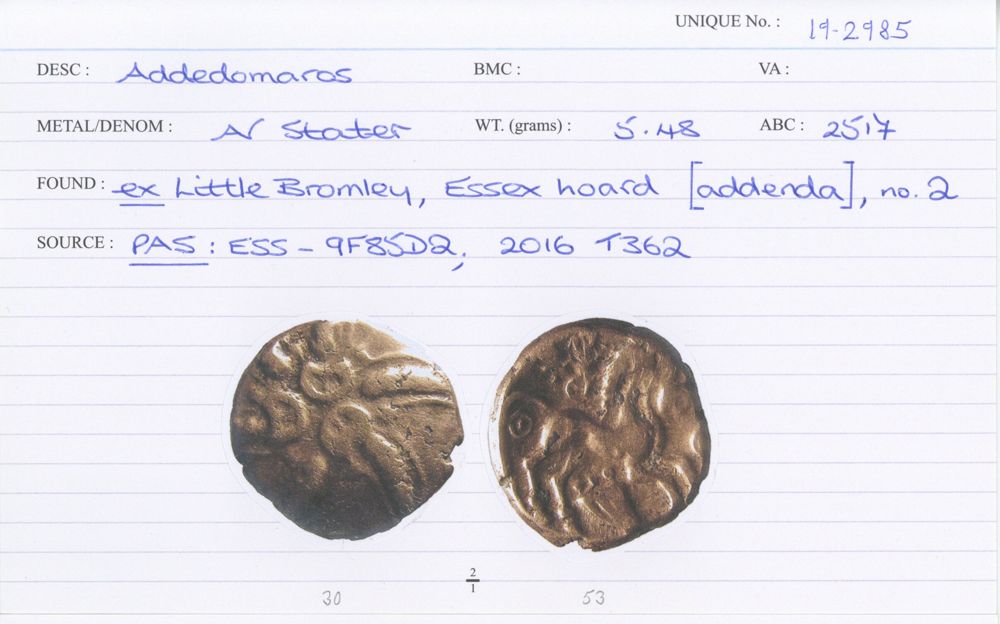 UNIQUE No. : 19-2985
DESC : Addedomaros BMC : VA :
METAL/DENOM : AV Stater WT. (grams) : 5.48 ABC : 2517
FOUND : ex Little Bromley, Essex hoard [addenda], no. 2
SOURCE : PAS : ESS - 9F85D2; 2016 T362
2
1
30 53